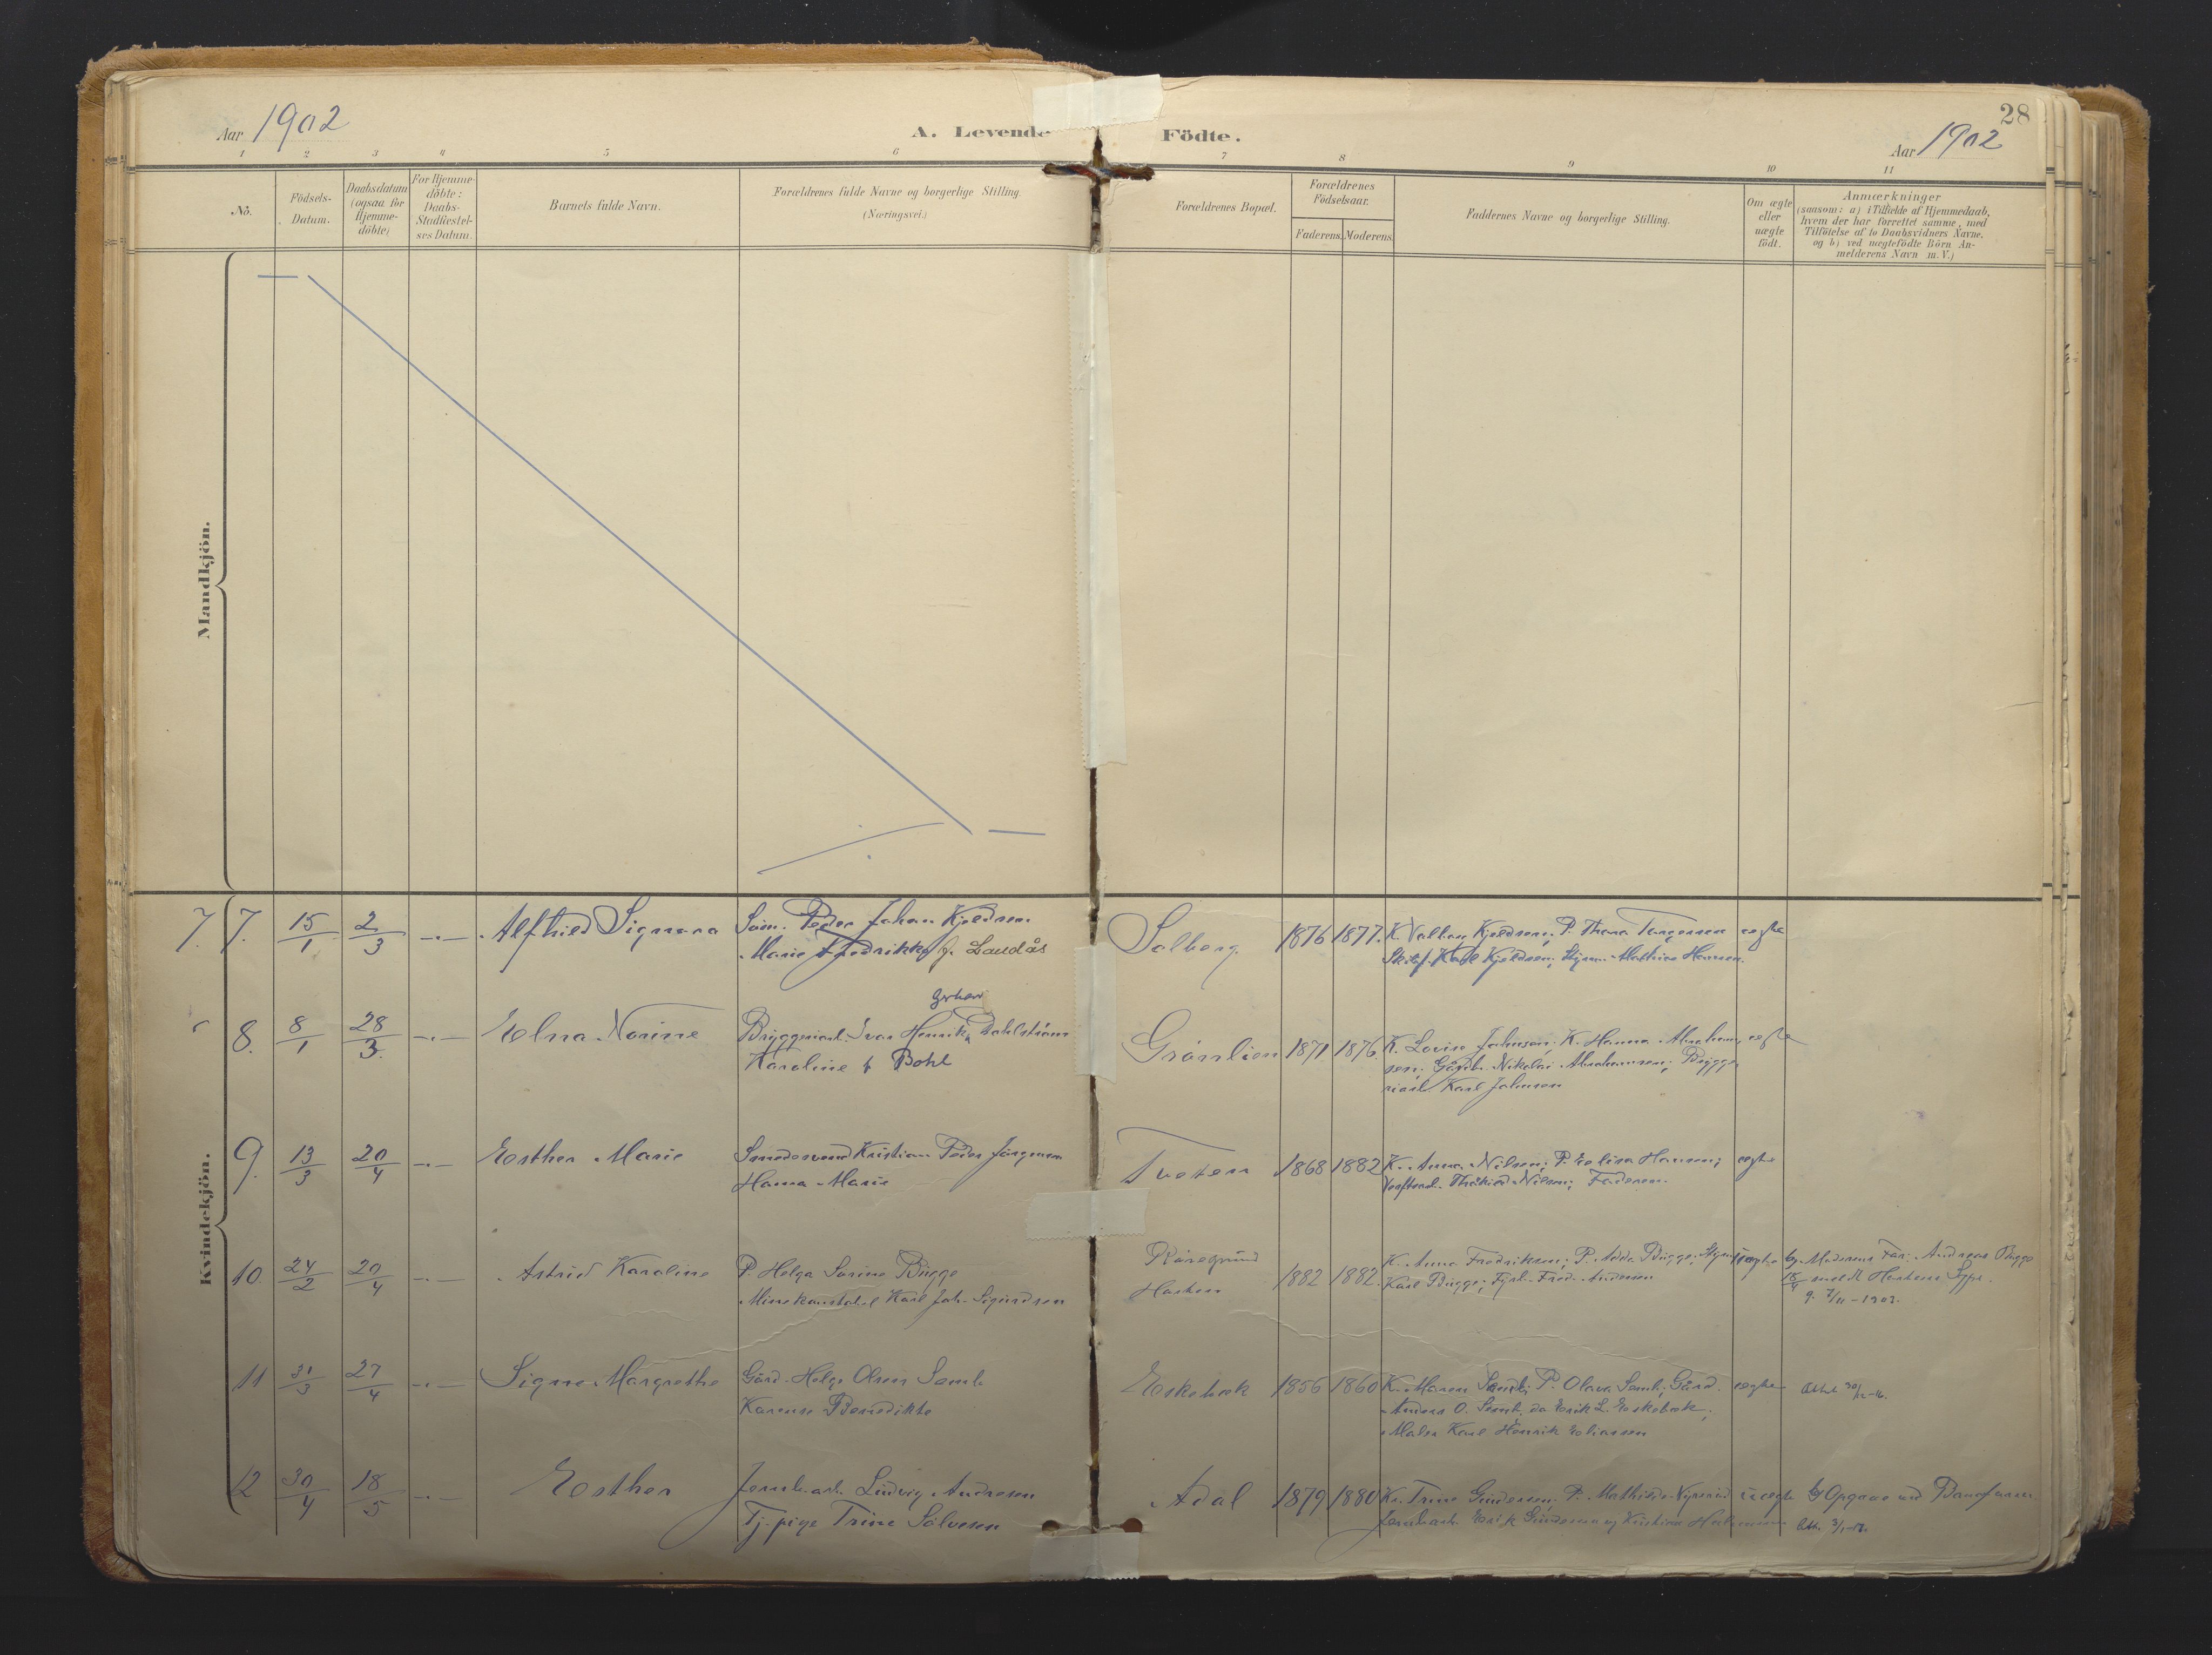 28
Aar 1902
A. Levende Födte.
Aar 1902
1 2 3 4 5 6 7 8 9 10 11
No.
Födsels-
Datum.
Daabsdatum
(ogsaa for
Hjemme-
döbte)
For Hjemme-
döbte:
Daabs-
Stadfæstel-
ses Datum.
Barnets fulde Navn.
Forældrenes fulde Navne og borgerlige Stilling.
(Næringsvei.)
Forældrenes Bopæl.
Forældrenes
Födselsaar.
Faderens. Moderens.
Faddernes Navne og borgerlige Stilling.
Om ægte
eller
uægte
födt.
Anmærkninger
(saasom: a) i Tilfælde af Hjemmedaab,
hvem der har forrettet samme, med
Tilföielse af to Daabsvidners Navne.
og b) ved uægtefödte Börn An-
melderens Navn m. V.)
Mandkjön.
Kvindekjön.
7. 7. 15/1 2/3 -.- Alfhild Signora
Söm. Peder Johan Kjeldsen
Marie Fredrikke f. Landås
Solberg. 1876 1877.
K. Valborg Kjeldsen; P. Thora Torgersen
Karl Kjeldsen; Styrm. Mathias Hansen.
ægte
8. 8/1 28/3. -.- Elna Norine
Bryggeriarb. Ivar Henrik Dahlström
Karoline f Bohl
Grönlien 1871 1876
K. Lovise Johnson; K. Hanna Abraham-
sen; Nikolai Abrahamsen; Brygge-
riarb Karl Johnsen
ægte
9. 13/3 20/4 -.- Esther Marie
Smedesvend Kristian Peder Jörgensen
Hanna Marie
Tveten 1868 1882
K. Anna Nilsen; P. Elisa Hansen;
Nilsen; Faderen.
ægte
10. 24/2 20/4 -.- Astrid Karoline
P. Helga Sorine Bugge
Minekonstabel Karl Joh. Sigurdsen
Råregrund
Horten
1882 1882.
K. Anna Fredriksen; P. Adda Bugge; Styrm
Karl Bugge; Fyrb. Fred. Andersen
uægte
Moderens Far: Andreas Bugge
18/4 meldt Hortens Spgr.
g. 7/11-1903.
11 31/3 27/4 -.- Signe Margrethe
Gård. Helge Olsen Semb
Karense Benedikte
Eskebæk 1856 1860
K. Maren Semb; P. Olava Semb; Gård.
Anders O. Semb, do Erik L. Eskebæk;
Maler Karl Henrik Eliassen
ægte
12 30/4 18/5 -.- Esther
Jernb.arb. Ludvig Andresen
Tj. pige Trine Sölvesen
Adal 1879 1880
Kr. Trine Gundersen; P. Mathilde
Jernb.arb. Erik Gundersen og Kristian
uægte
Opgave ved Barnefaren